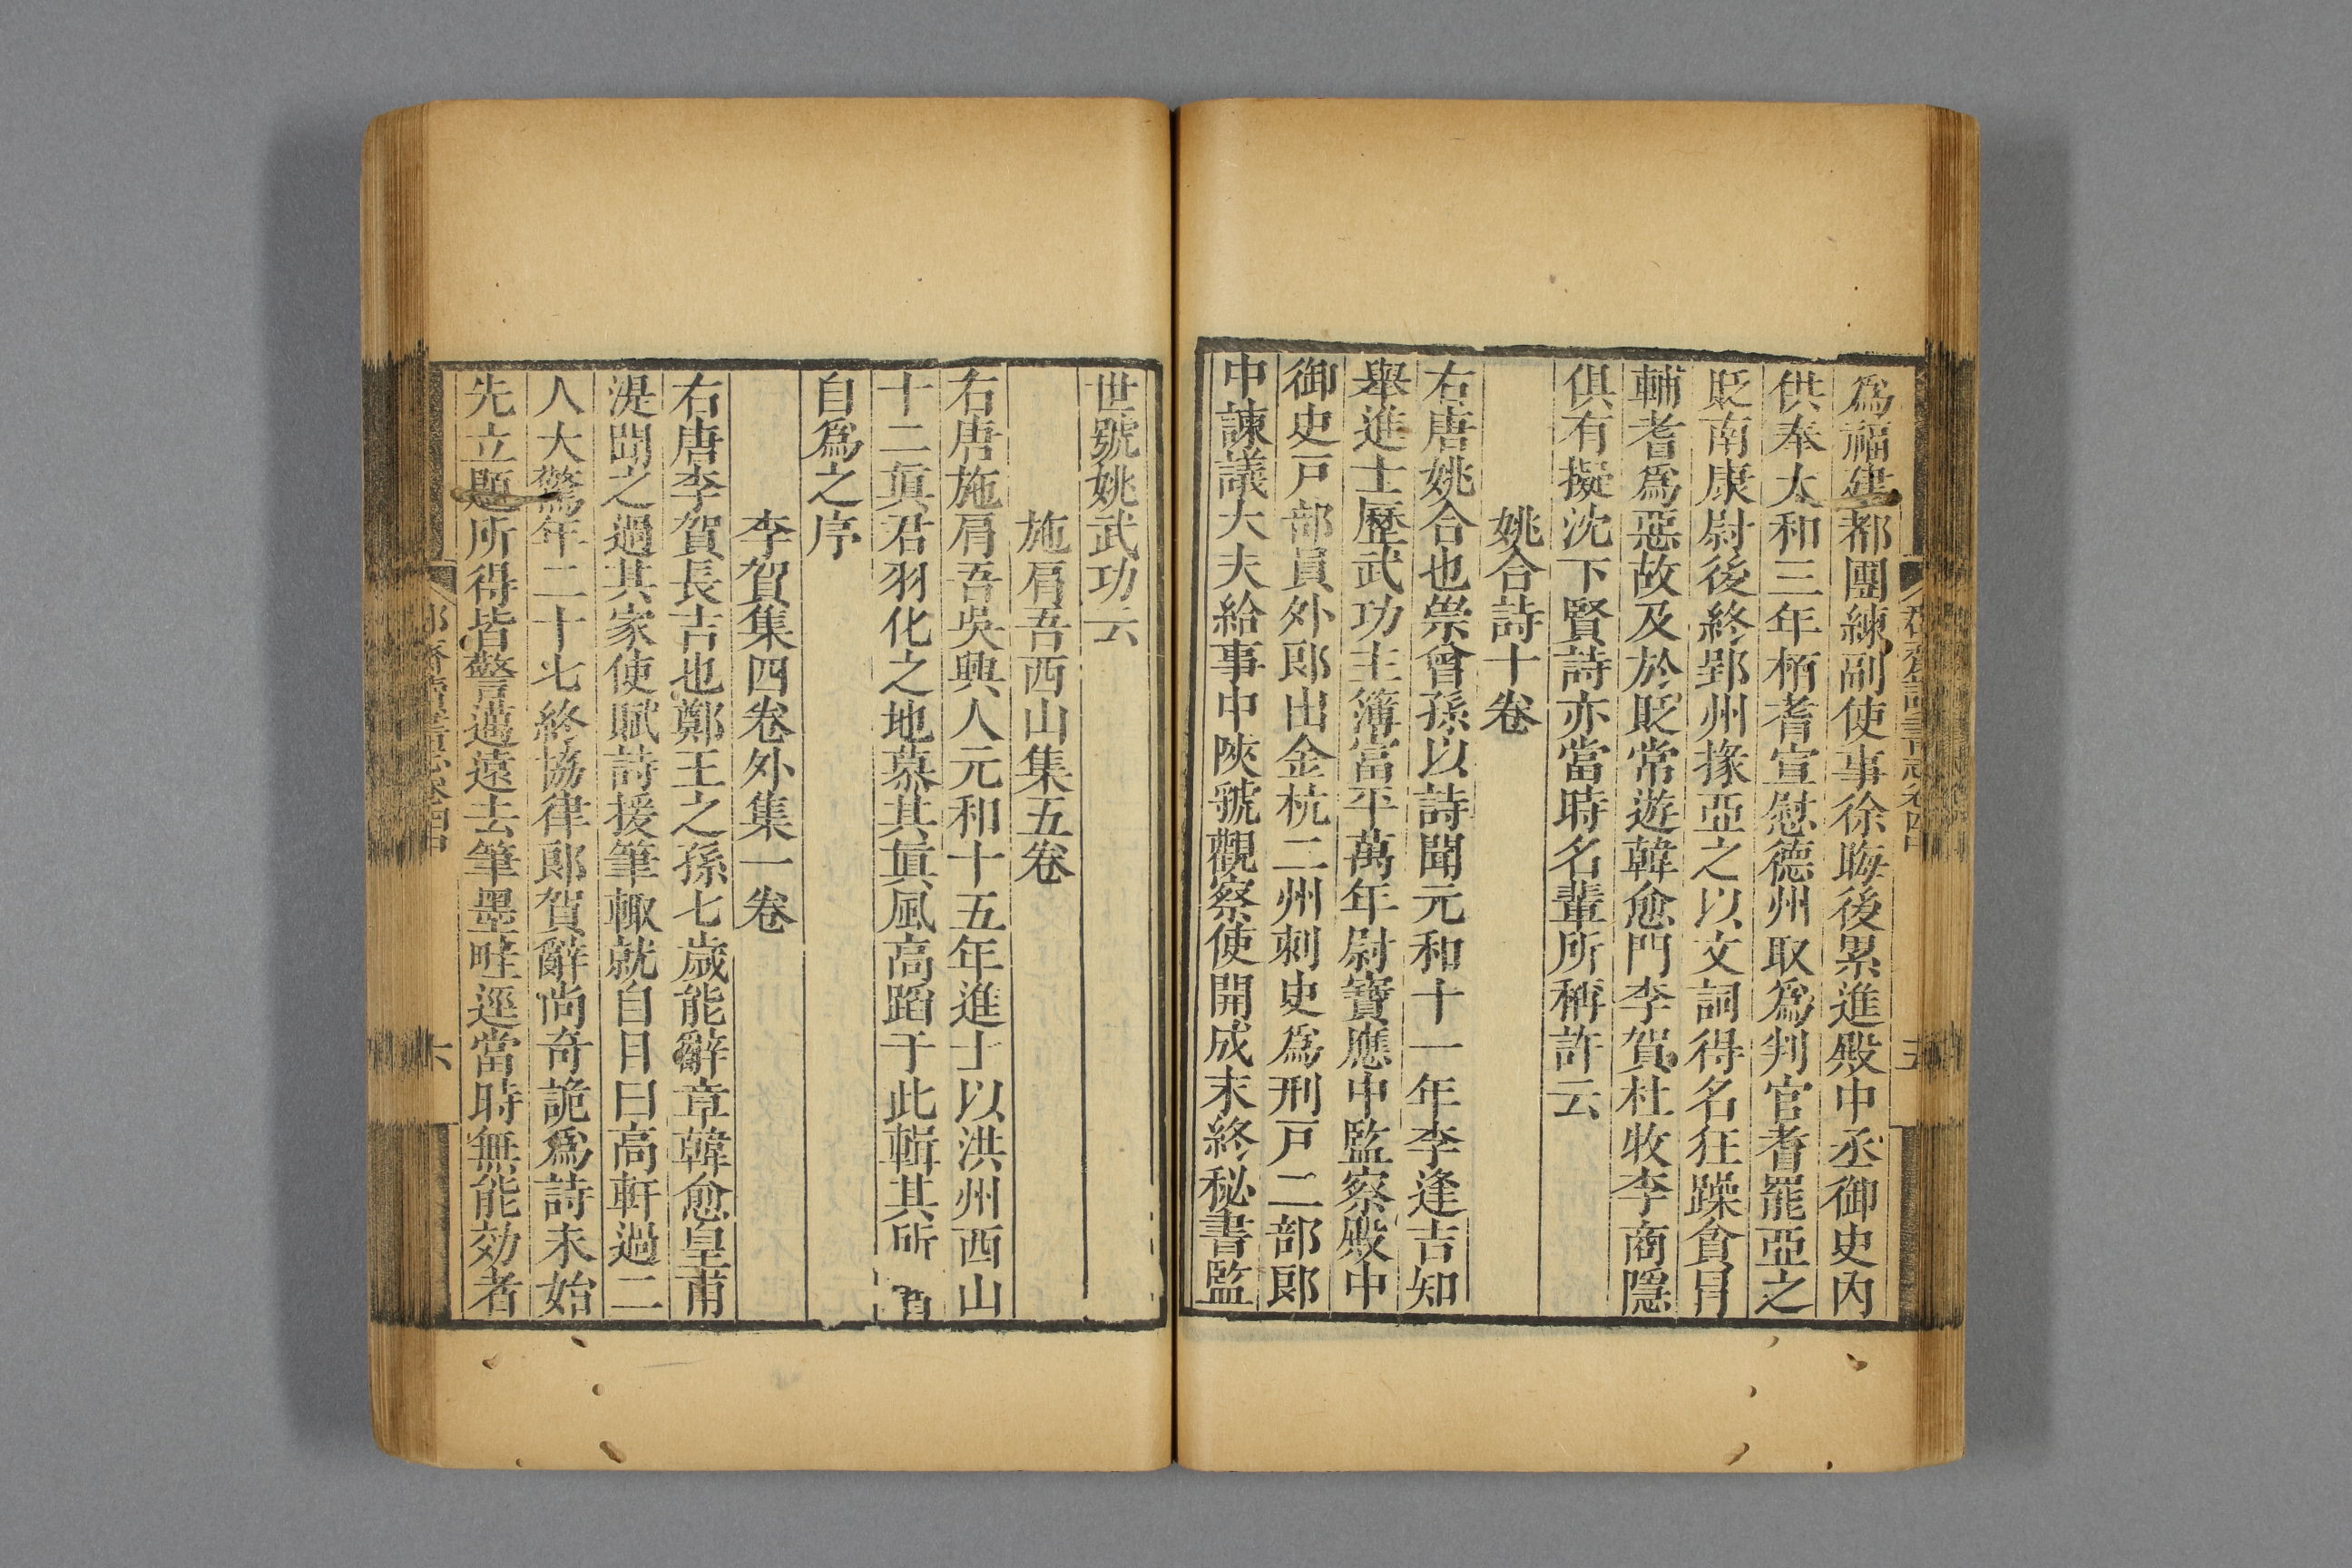 爲福建都團練副使事徐晦後累進殿中丞御史內
供奉太和三年栢耆宣慰德州取爲判官耆罷亞之
貶南康尉後終郢州掾亞之以文詞得名狂躁貪冒
輔耆爲惡故及於貶常遊韓愈門李賀杜牧李商隱
俱有擬沈下賢詩亦當時名輩所稱許云
姚合詩十卷
右唐姚合也崇曾孫以詩聞元和十一年李逢吉知
舉進士歷武功主簿富平萬年尉寶應中監察殿中
御史戸部員外郞出金杭二州刺史爲刑戸二部郞
中諫議大夫給事中陝虢觀察使開成末終秘書監
世號姚武功云
施肩吾西山集五卷
右唐施肩吾吳興人元和十五年進士以洪州西山
十二眞君羽化之地慕其眞風高蹈于此輯其所
自爲之序
李賀集四卷外集一卷
右唐李賀長吉也鄭王之孫七歲能辭章韓愈皇甫
湜聞之過其家使賦詩援筆輒就自目曰高軒過二
人大驚年二十七終協律郞賀辭尚奇詭爲詩未始
先立題所得皆警邁遠去筆墨畦逕當時無能効者
六